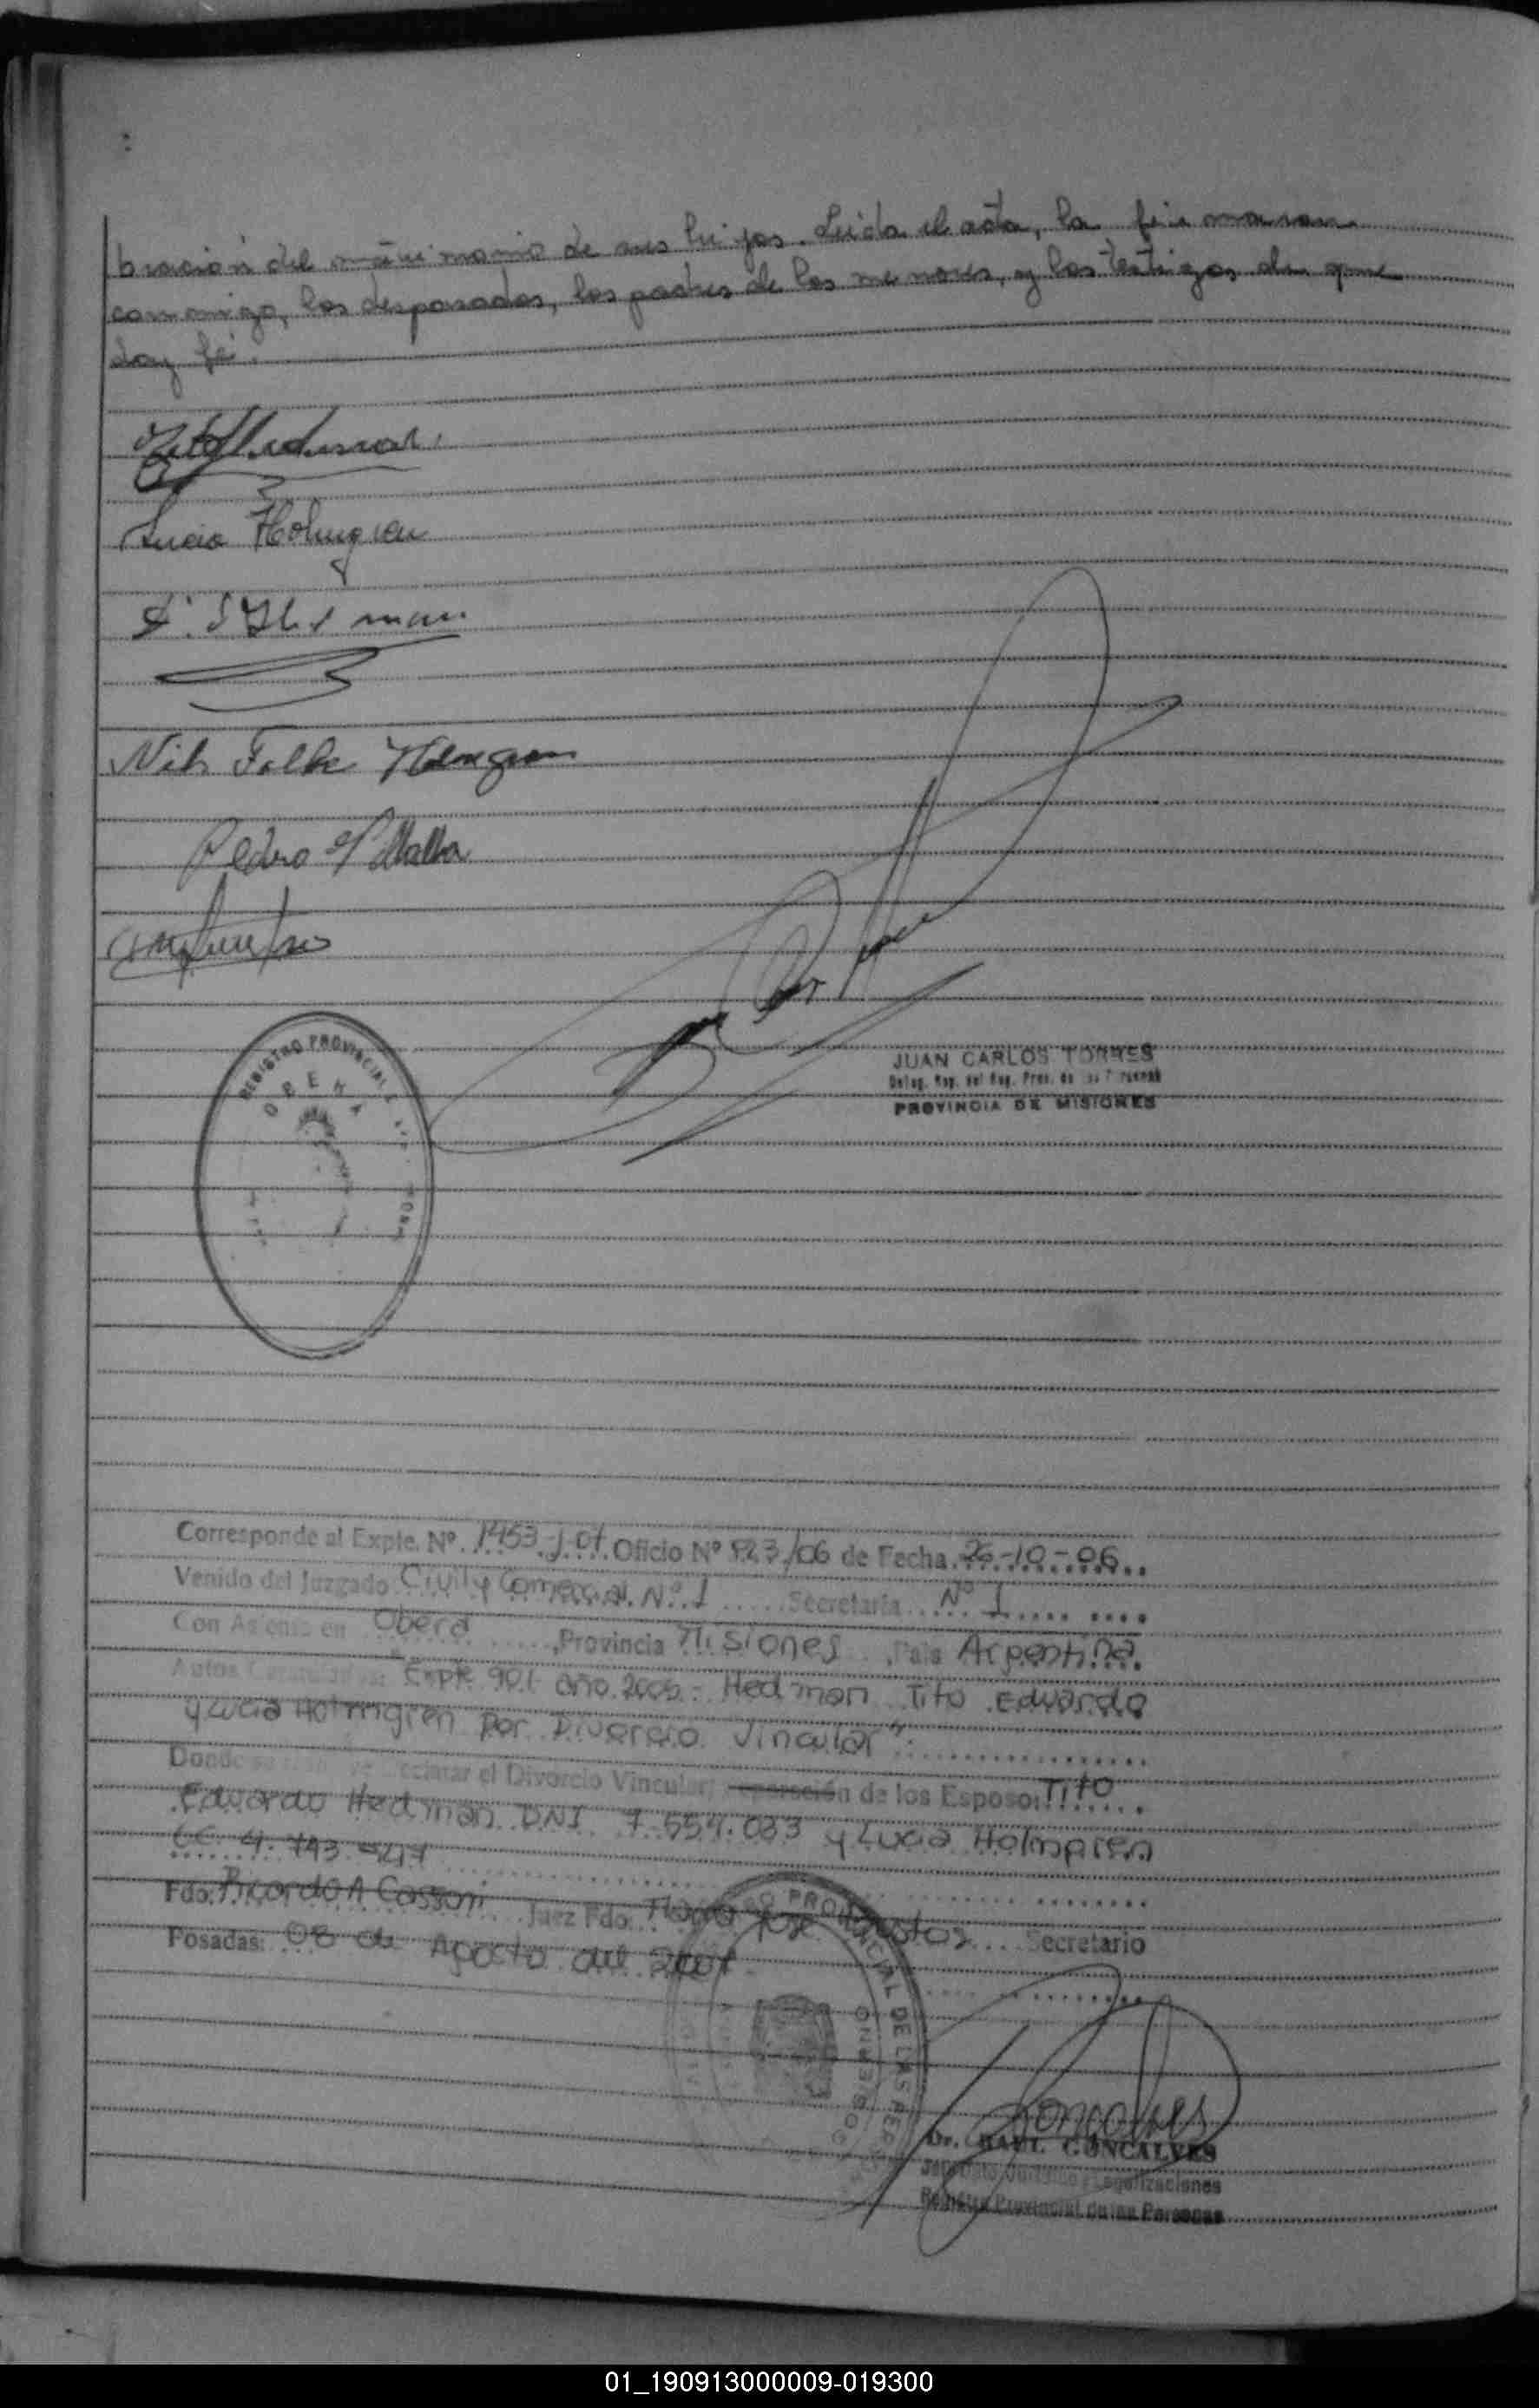 bración del matrimonio de sus hijos. Leida el acta, la firmaron
conmigo, los desposados, los padres de los menores, y los testigos de que
doy fé.
Lucia Holmgren
Nils Falke Holmgren
Pedro
REGISTRO PROVINCIAL
OBERA
JUAN CARLOS TORRES
Deleg. Rep. del Reg. Prov. de las Personas
PROVINCIA DE MISIONES
Corresponde al Expte. Nº 1453-J-07 Oficio Nº 823/06 de Fecha 26-10-06
Venido del Juzgado Civil y Comercial Nº 1 Secretaría Nº 1
Con Asiento en Oberá, Provincia Misiones, País Argentina
Autos Caratulados: "Expte 901 año 2005 - Hedman Tito Eduardo
y Lucia Holmgren por Divorcio Vincular"
Donde se decretar el Divorcio Vincular; separación de los Esposo: Tito
Eduardo Hedman DNI 7.554.033 y Lucia Holmgren
4.793.547
Fdo: Ricardo A Cassoni Juez Fdo: José Bustos Secretario
Posadas: 08 de Agosto del 2007
REGISTRO PROVINCIAL DE LAS PERSONAS
GOBIERNO
Goncalves
Dr. RAUL GONCALVES
Legalizaciones
Registro Provincial de las Personas
01_190913000009-019300